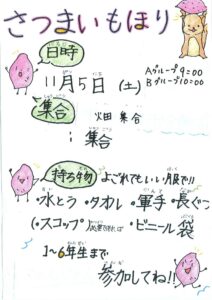 さつまいもほり
日時
11月5日(土)
Aグループ 9:00
Bグループ 10:00
集合
畑 集合
: 集合
持ち物
よごれてもいい服で!!
・水とう・タオル・軍手・長ぐつ
(・スコップ)
・ビニール袋
1~6年生まで
参加してね!!